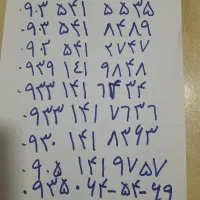 ۰۹۳ ۵۴۱ ۵۵۳۵
۰۹۳ ۵۴۱ ۸۴۸۹
۰۹۲ ۵۴۱ ۲۷۴۷
۹۳۹ ۱۴۱ ۹۸۴۸
۹۳۳ ۱۴۱ ۶۴۳۴
۹۳۳ ۱۴۱ ۷۶۳۶
۹۳۰ ۱۴۱ ۸۳۹۳
۹۰۵ ۱۴۱ ۹۷۵۷
۰۹۳۵۰۶۴-۵۴-۶۹